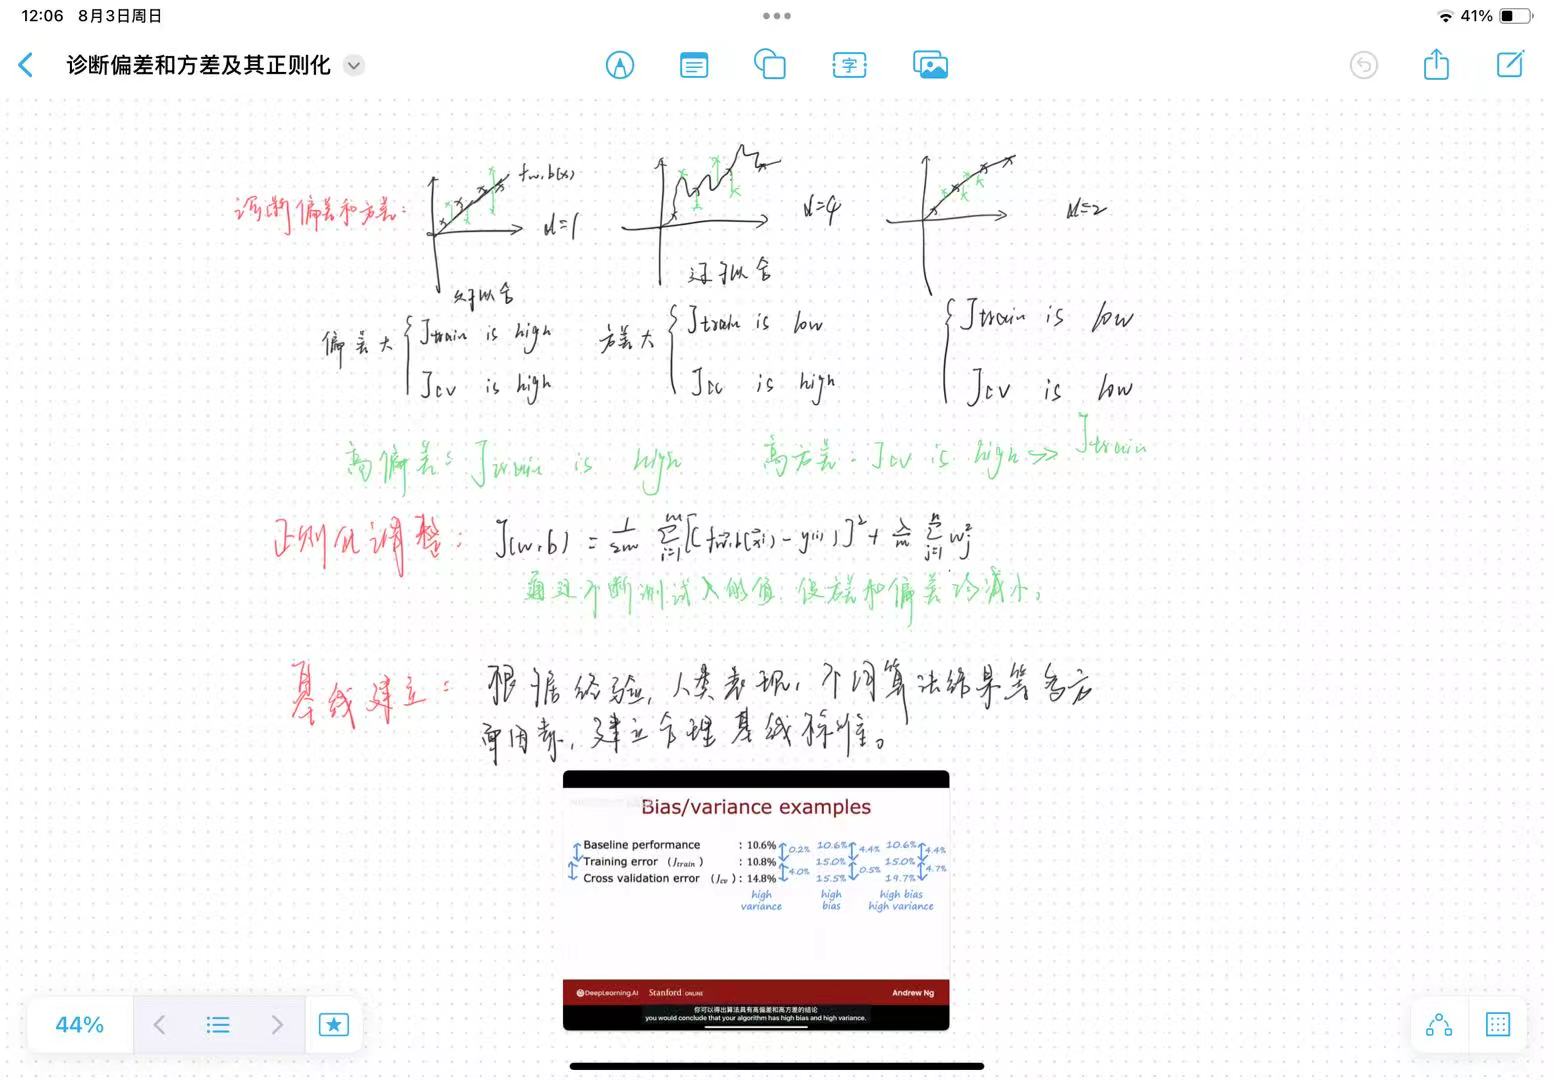 12:06 8月3日周日
41%
诊断偏差和方差及其正则化
字
诊断偏差和方差：
fw,b(x)
d=1
d=4
d=2
欠拟合
过拟合
偏差大 { Jtrain is high
Jcv is high
方差大 { Jtrain is low
Jcv is high
{ Jtrain is low
Jcv is low
高偏差：Jtrain is high
高方差：Jcv is high >> Jtrain
正则化调整：
J(w,b) = 1/2m m∑i=1 [(fw,b(xi) - y(i))]² + λ/m n∑j=1 wj²
通过不断测试λ的值，使方差和偏差均减小。
基线建立：
根据经验，人类表现，不同算法结果等多方
面因素，建立合理基线标准。
Bias/variance examples
Baseline performance : 10.6% 10.6% 10.6%
0.2% 4.4% 4.4%
Training error (Jtrain) : 10.8% 15.0% 15.0%
4.0% 0.5% 4.7%
Cross validation error (Jcv) : 14.8% 15.5% 19.7%
high variance
high bias
high bias high variance
DeepLearning.AI Stanford ONLINE Andrew Ng
你可以得出算法具有高偏差和高方差的结论
you would conclude that your algorithm has high bias and high variance.
44%